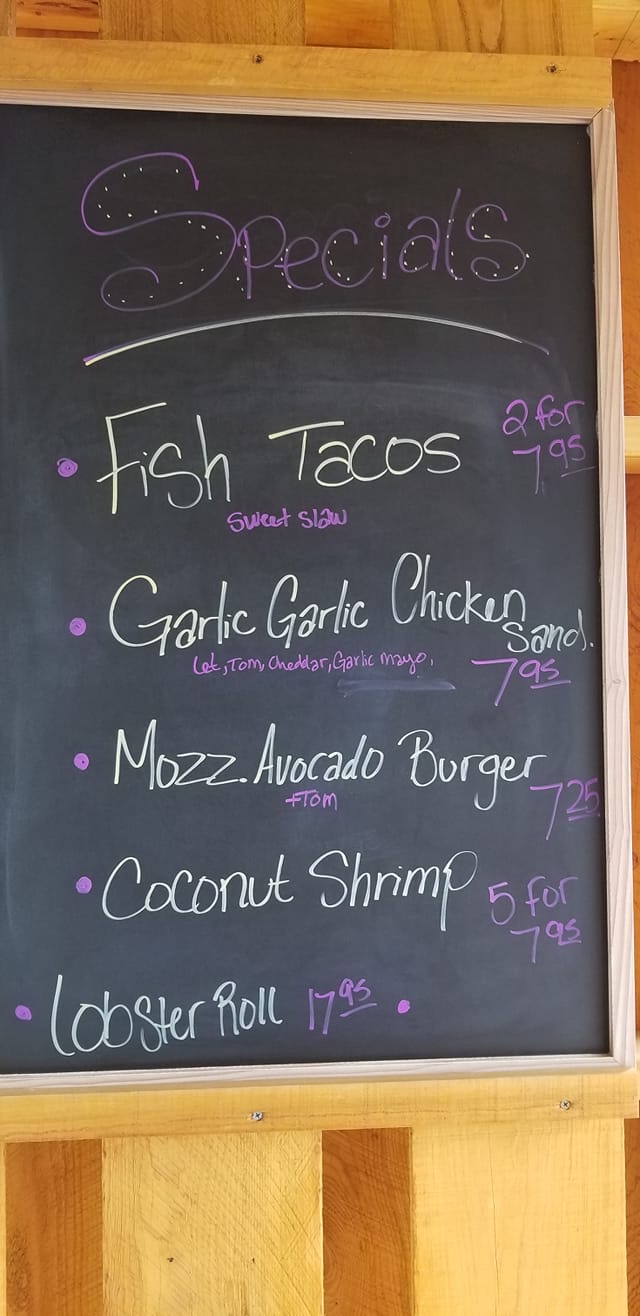 Specials
Fish Tacos 2 for
7.95
Sweet Slaw
Garlic Garlic Chicken
Sand.
Let, Tom, Cheddar, Garlic mayo. 7.95
Mozz. Avocado Burger
+Tom 7.25
Coconut Shrimp 5 for
7.95
Lobster Roll 17.95